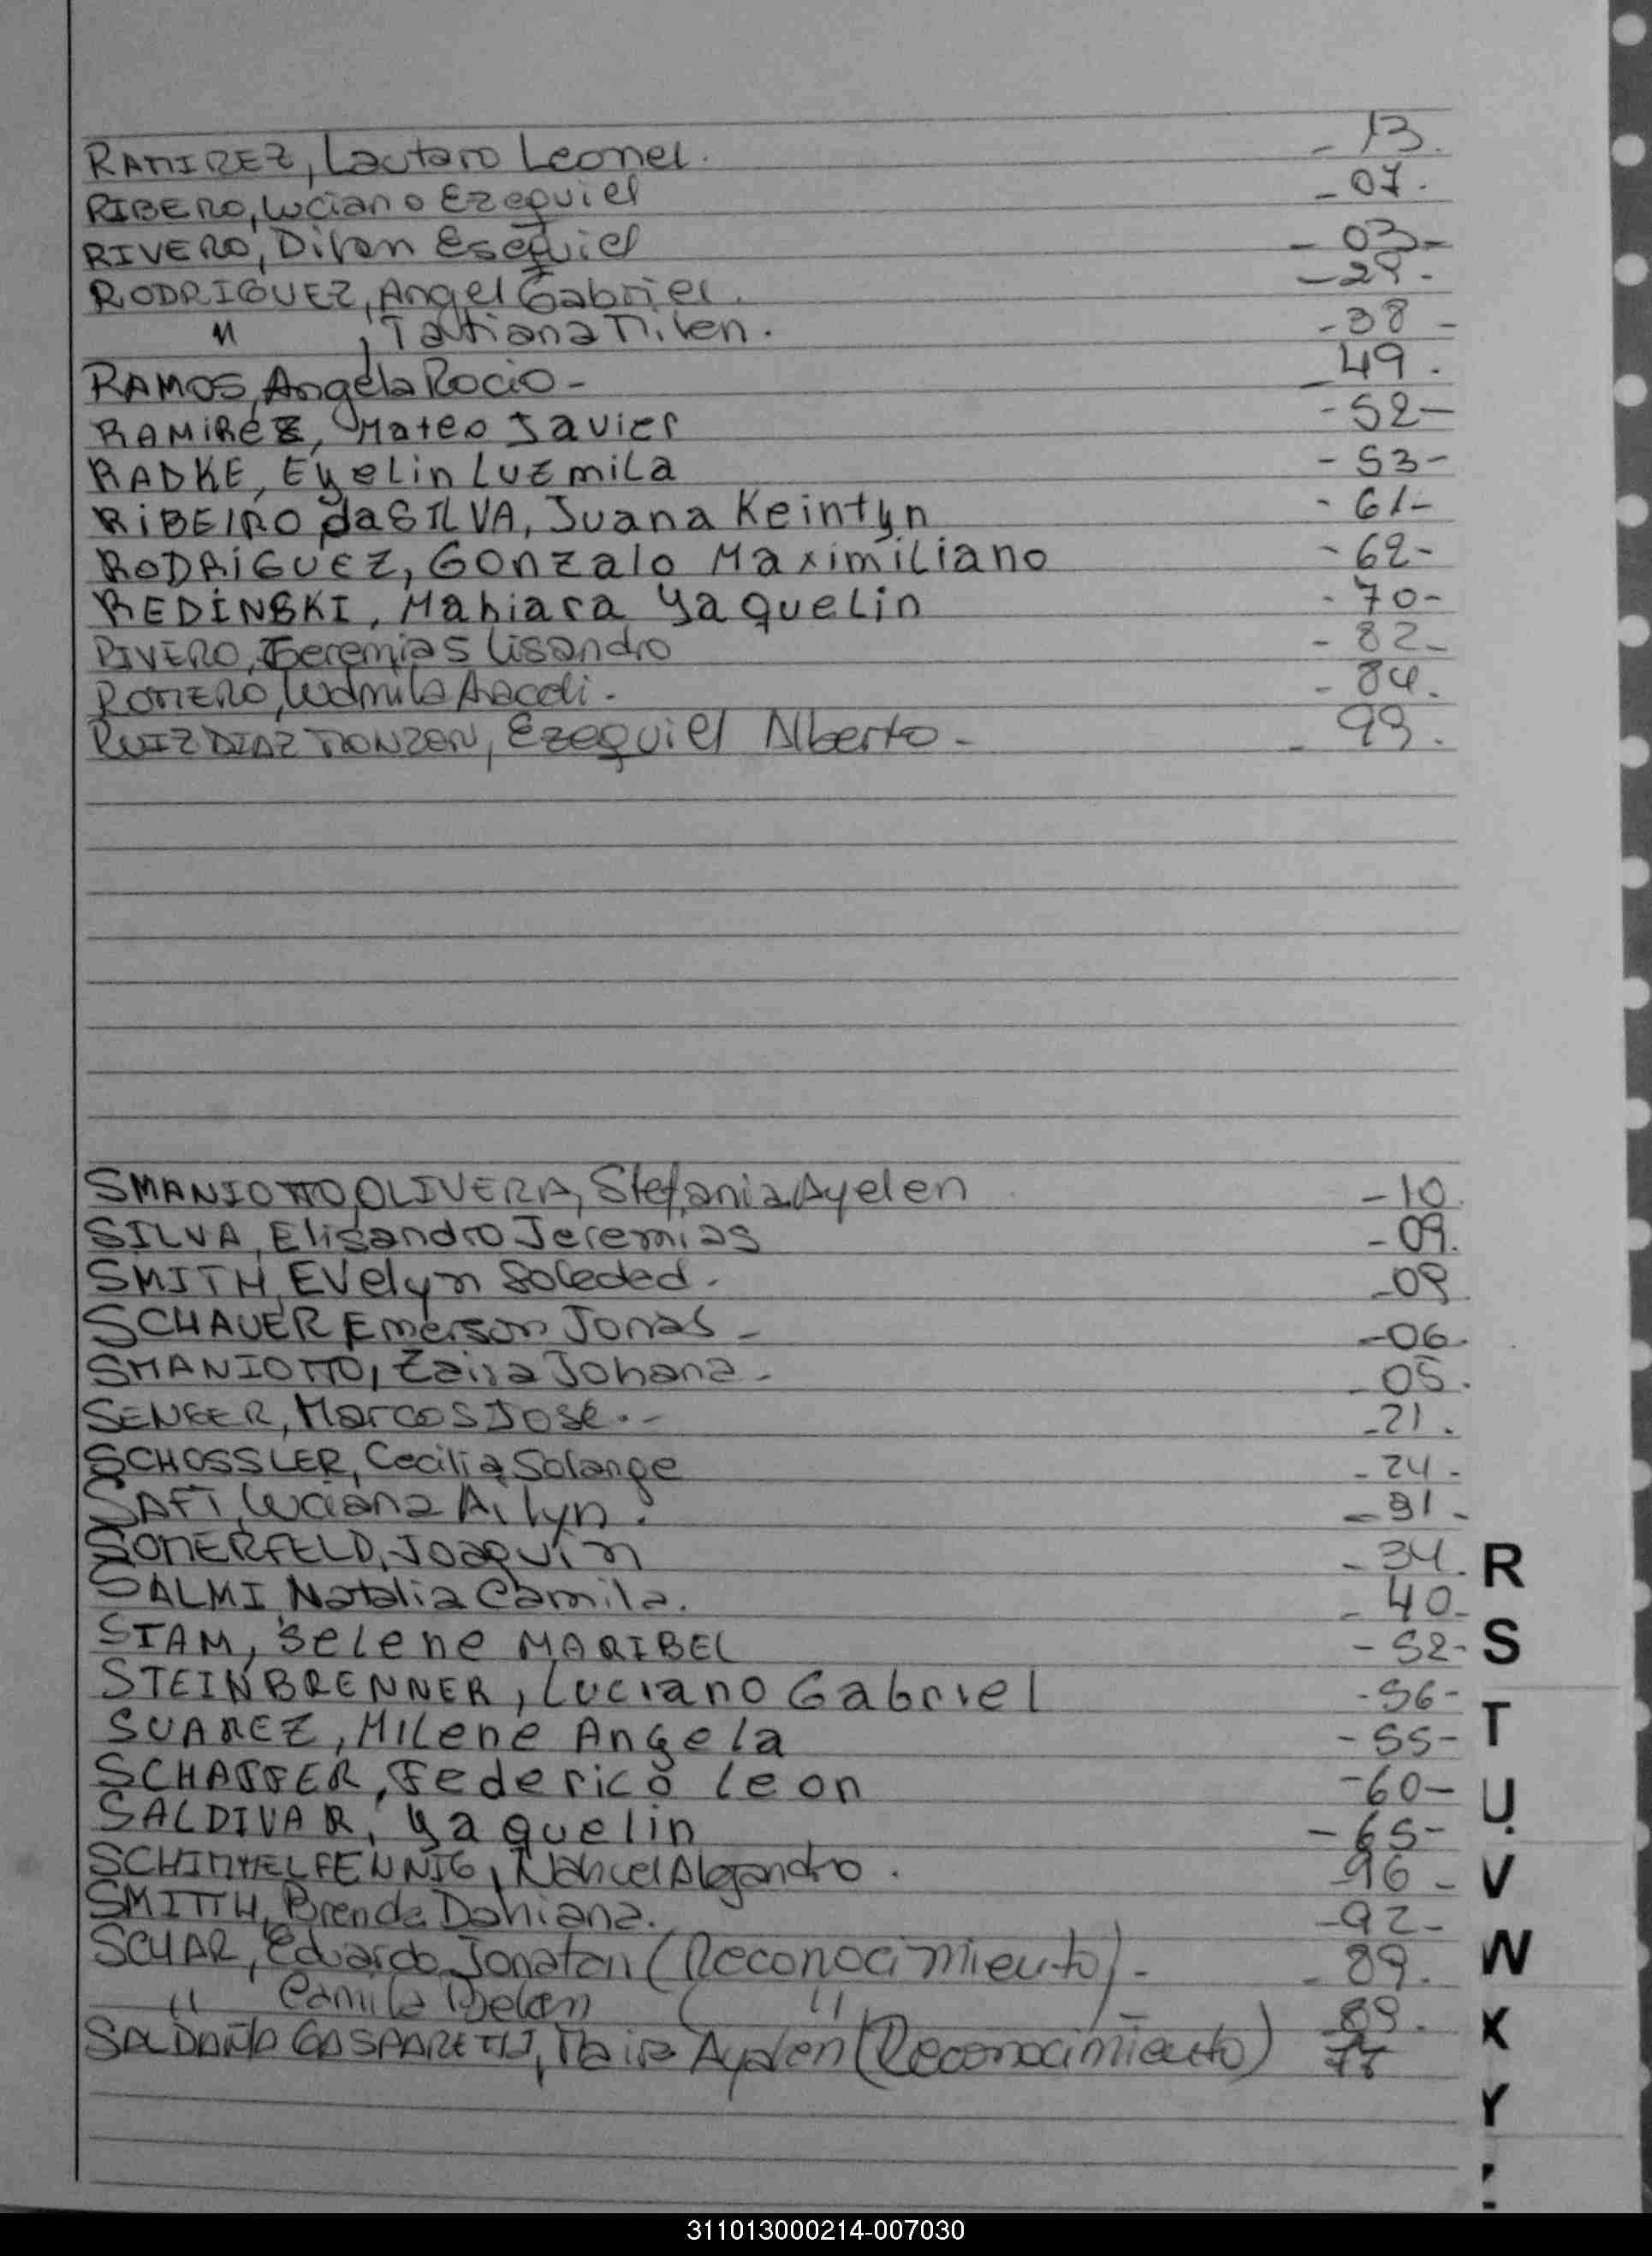 RAMIREZ, Lautaro Leonel. - 13.
RIBERO, Luciano Ezequiel - 07.
RIVERO, Dilan Esequiel - 03-
RODRIGUEZ, Angel Gabriel. - 29-
" , Tatiana Milen. - 38 -
RAMOS, Angela Rocio - - 49.
RAMIREZ, Mateo Javier - 52-
RADKE, Eyelin Luzmila - 53-
RIBEIRO da SILVA, Juana Keintyn - 61-
RODRIGUEZ, Gonzalo Maximiliano - 62-
REDINSKI, Mahiara Yaquelin - 70-
RIVERO, Geremias Lisandro - 82-
ROMERO, Ludmila Araceli. - 84.
RUIZ DIAZ MONZON, Ezequiel Alberto - - 93.
SMANIOTTO OLIVERA, Stefania Ayelen - 10.
SILVA, Elisandro Jeremias - 09.
SMITH, Evelyn Soledad. - 09.
SCHAUER Emerson Jonas - - 06.
SMANIOTTO, Zaira Johana - - 05.
SENGER, Marcos José. - - 21.
SCHOSSLER, Cecilia Solange - 24-
SAFT, Luciana Ailyn. - 31-
SOMERFELD, Joaquín - 34.
SALMI Natalia Camila. - 40-
STAM, Selene MARIBEL - 52-
STEINBRENNER, Luciano Gabriel - 56-
SUAREZ, Milene Angela - 55-
SCHAFFER, Federico Leon - 60-
SALDIVAR, Yaquelin - 65-
SCHIMMELFENNIG, Nahuel Alejandro. - 96-
SMITH, Brenda Dahiana. - 92-
SCHAR, Eduardo Jonatan (Reconocimiento). - 89.
" Camila Belen ( " ) - 89.
SALDAÑA GASPARETTI, Maira Ayelen (Reconocimiento) 77
R
S
T
U
V
W
X
Y
311013000214-007030